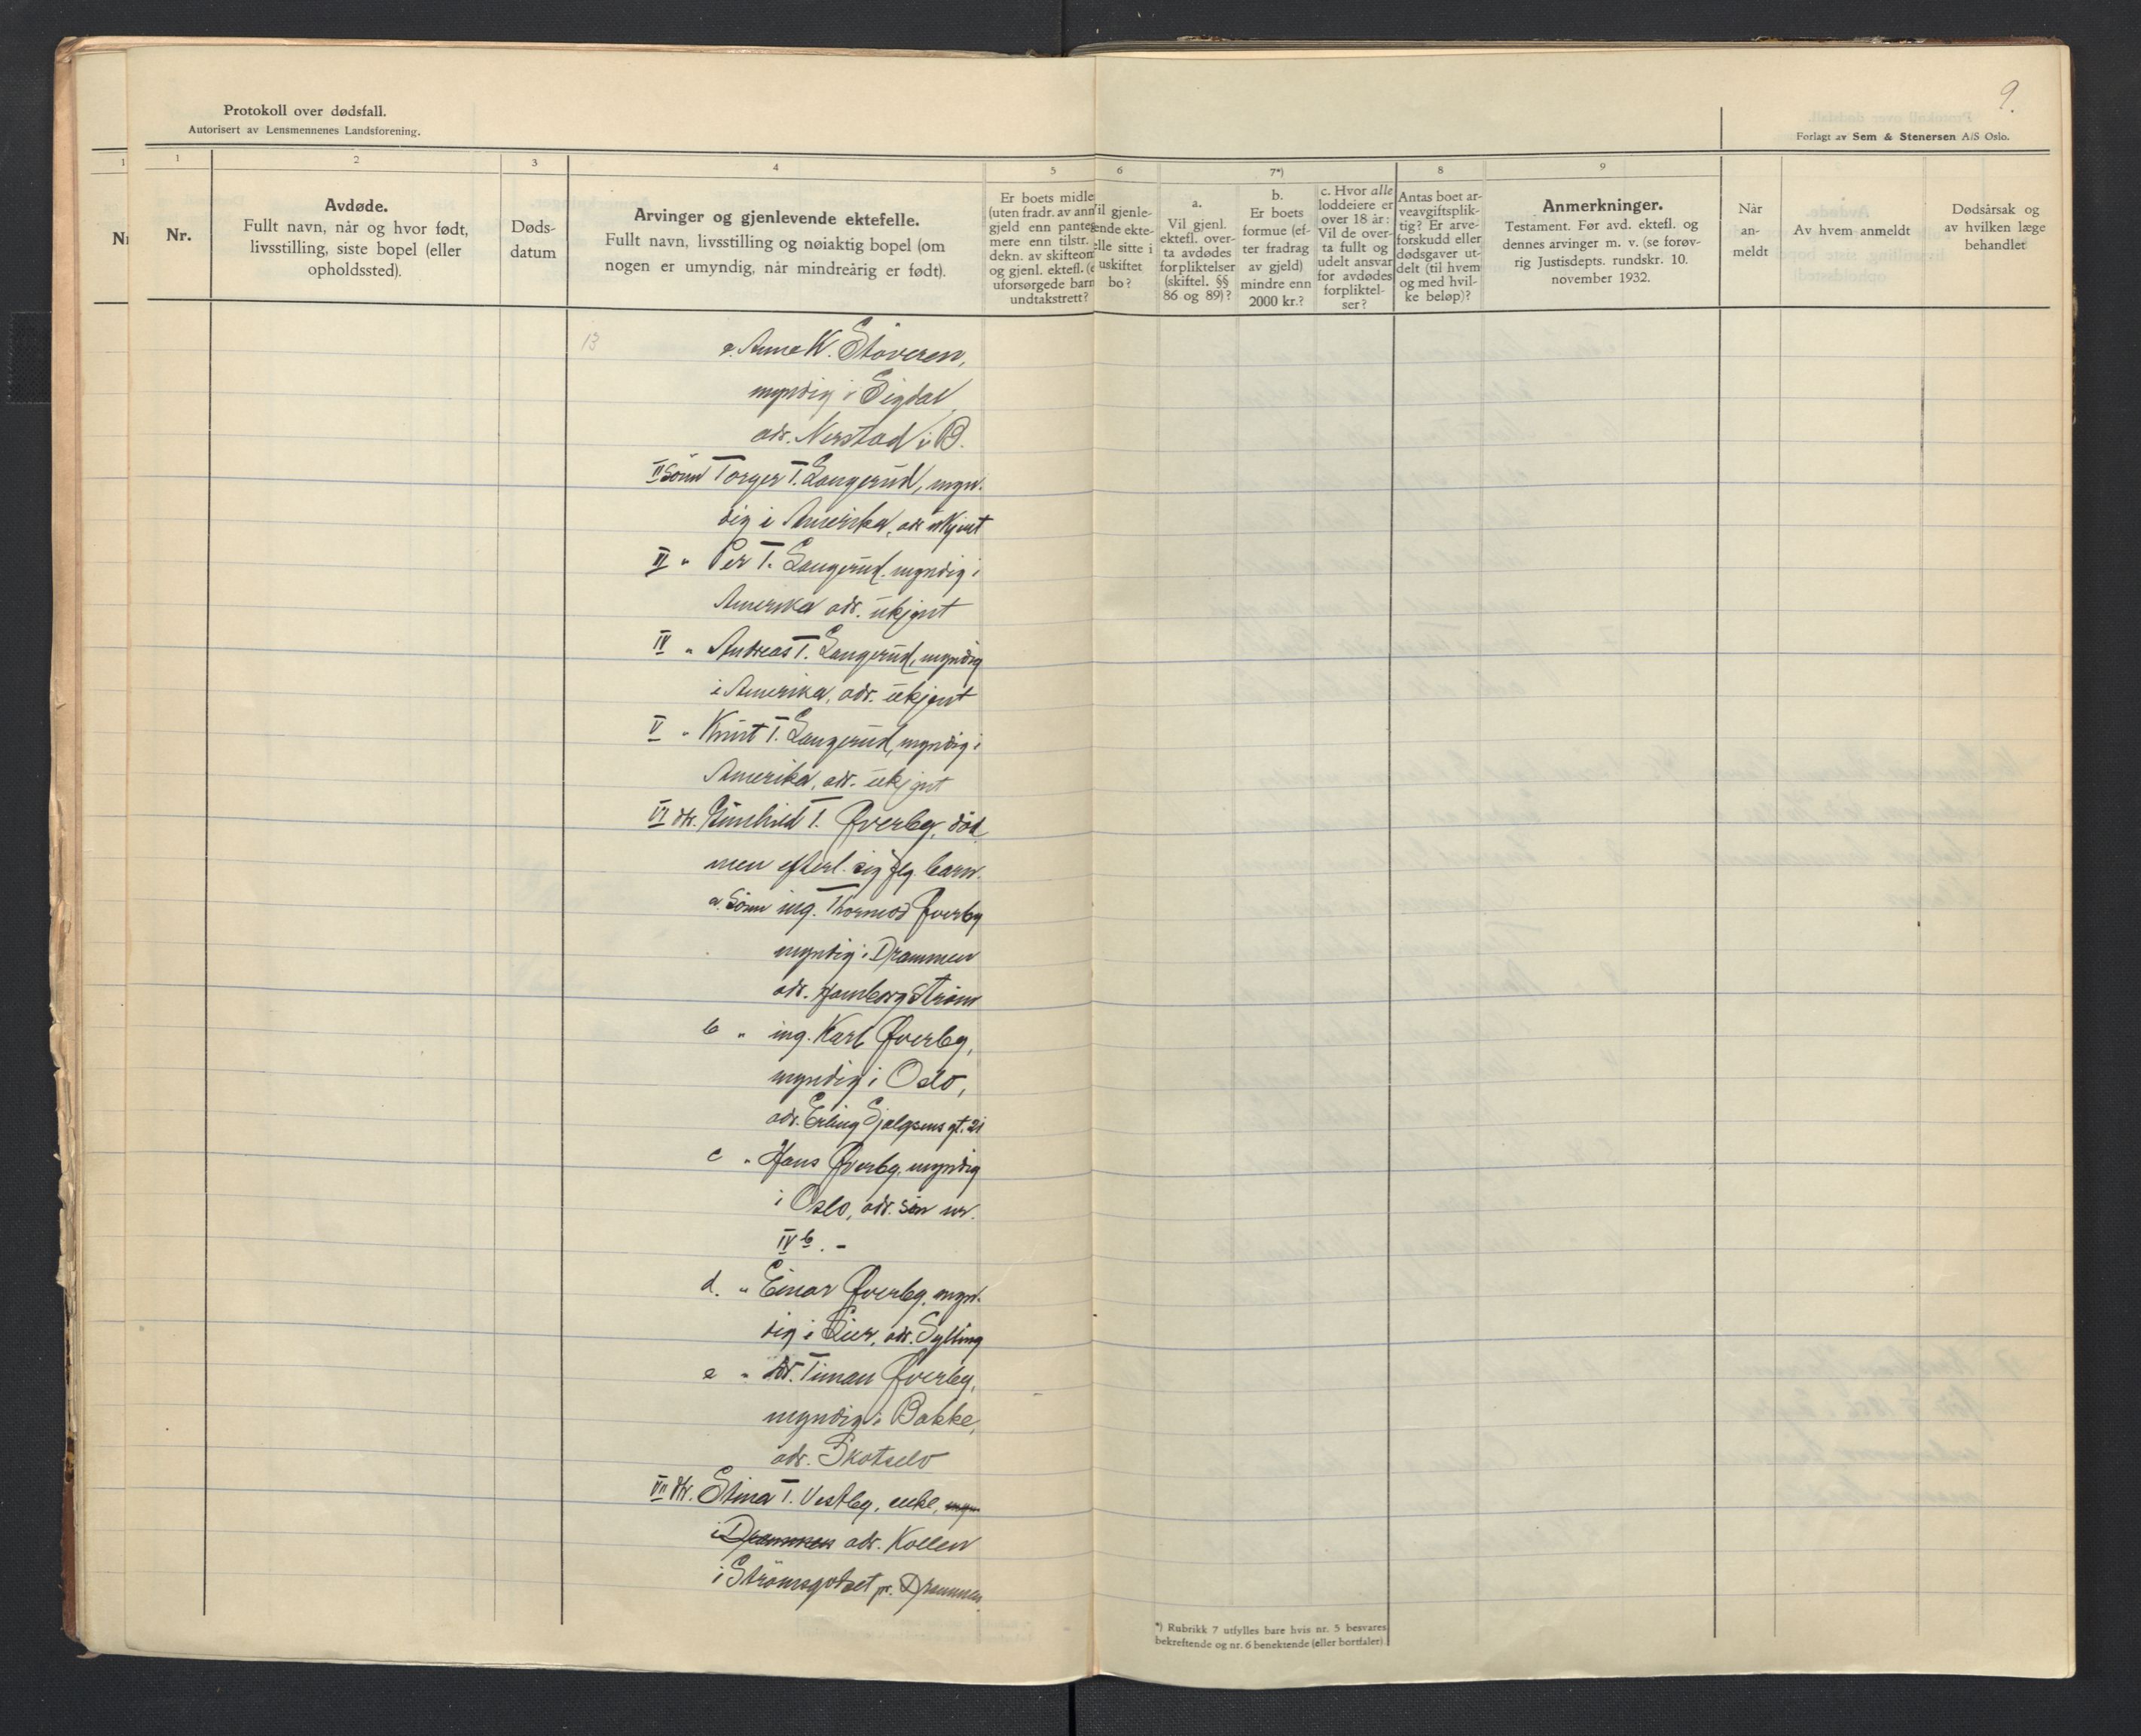 9.
Protokoll over dødsfall.
Autorisert av Lensmennenes Landsforening.
Forlagt av Sem & Stenersen A/S Oslo.
1
1
2
3
4
5
6
7*)
8
9
Nr.
Avdøde.
Fullt navn, når og hvor født,
livsstilling, siste bopel (eller
opholdssted).
Døds-
datum
Arvinger og gjenlevende ektefelle.
Fullt navn, livsstilling og nøiaktig bopel (om
nogen er umyndig, når mindreårig er født).
Er boets midle
(uten fradr. av ann
gjeld enn panteg
mere enn tilstr.
dekn. av skifteom
og gjenl. ektefl. (e
uforsørgede barn
undtakstrett?
il gjenle-
ende ekte-
elle sitte i
uskiftet
bo?
a.
Vil gjenl.
ektefl. over-
ta avdødes
forpliktelser
(skiftel. §§
86 og 89)?
b.
Er boets
formue (ef-
ter fradrag
av gjeld)
mindre enn
2000 kr.?
c. Hvor alle
loddeiere er
over 18 år:
Vil de over-
ta fullt og
udelt ansvar
for avdødes
forpliktel-
ser?
Antas boet ar-
veavgiftsplik-
tig? Er arve-
forskudd eller
dødsgaver ut-
delt (til hvem
og med hvil-
ke beløp)?
Anmerkninger.
Testament. Før avd. ektefl. og
dennes arvinger m. v. (se forøv-
rig Justisdepts. rundskr. 10.
november 1932.
Når
an-
meldt
Av hvem anmeldt
Dødsårsak og
av hvilken læge
behandlet
13
e. Anne K. Støveren,
myndig i Sigdal
adr. Nerstad i B.
II Sønn Torger T. Langerud, myn-
dig i Amerika, adr ukjent
III " Per T. Langerud, myndig i
Amerika adr. ukjent
IV " Andreas T. Langerud, myndig
i Amerika, adr. ukjent
V " Knut T. Langerud, myndig i
Amerika, adr. ukjent
VI dtr. Gunhild T. Øverby, død
men efterl. sig flg. barn.
a. Sønn ing. Thormod Øverby
myndig i Drammen
adr. Hamborgstrøm
b " ing. Karl Øverby,
myndig i Oslo,
adr. Erling Sjalgsens gt. 21
c " Hans Øverby, myndig
i Oslo, adr. som nr.
IV b. -
d. " Einar Øverby, myn-
dig i Lier, adr. Sylling
e " Timan Øverby,
myndig i Bakke,
adr. Skotselv
VII dtr. Stina T. Vestby, enke, myn
i Drammen adr. Kollen
i Strømsgodset pr. Drammen.
*) Rubrikk 7 utfylles bare hvis nr. 5 besvares
bekreftende og nr. 6 benektende (eller bortfaler).